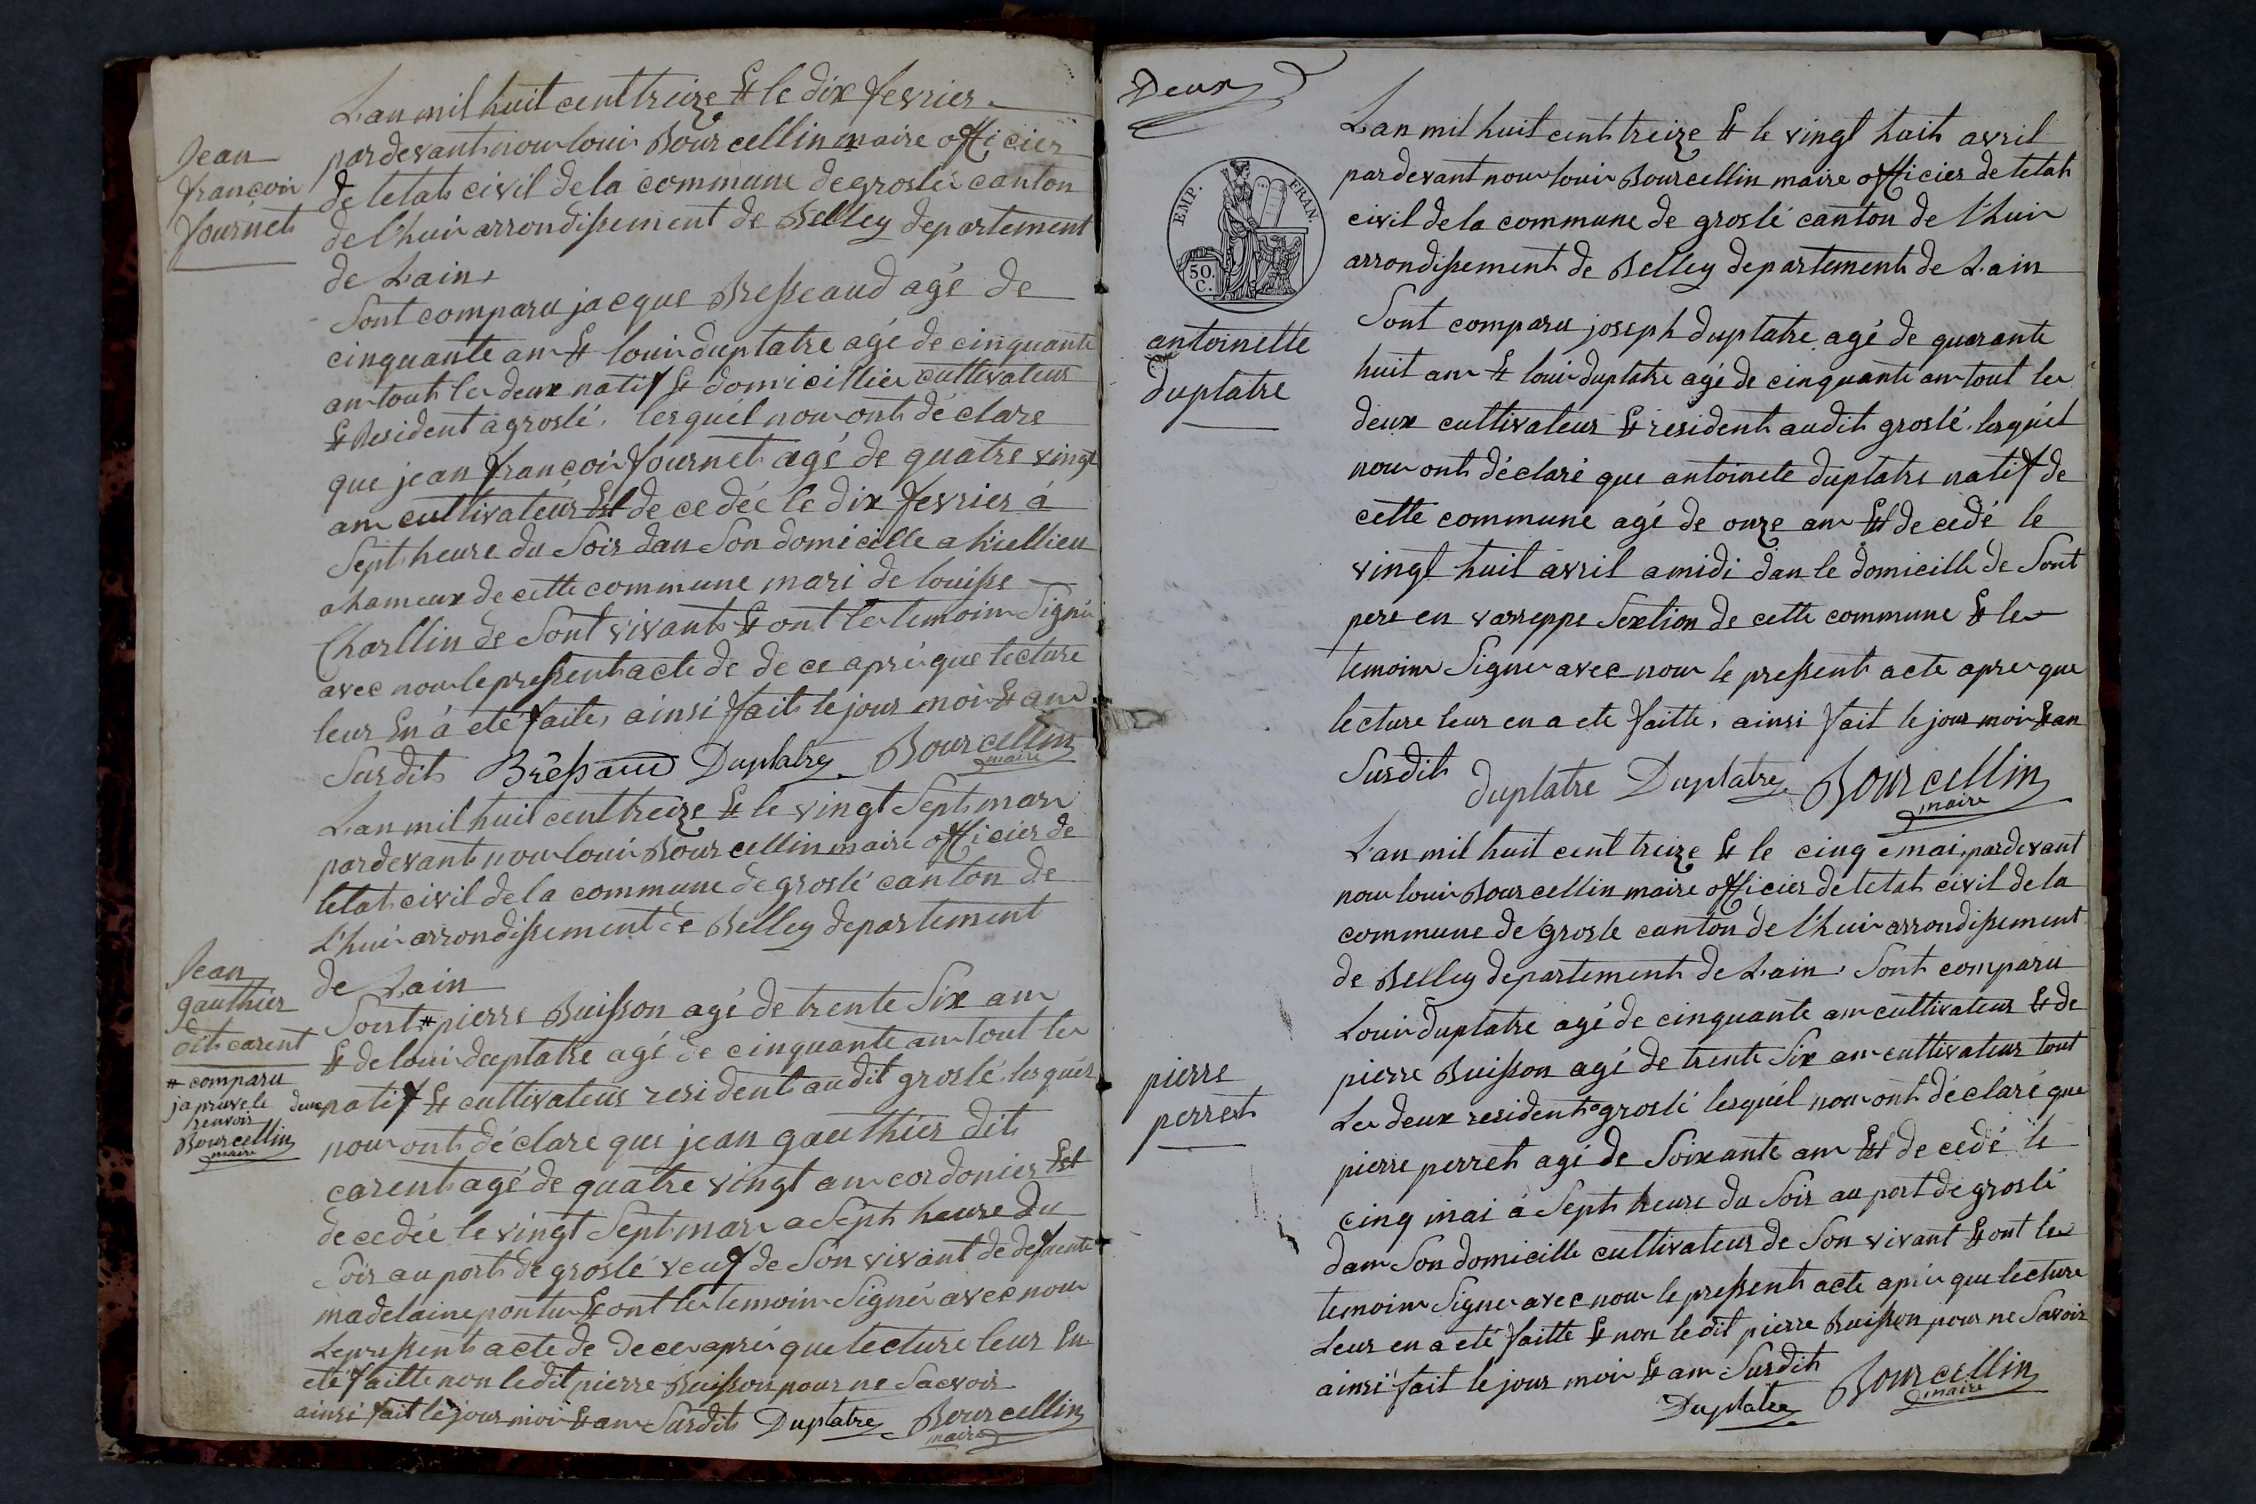 Jean
françois
fournet
L'an mil huit cent treize & le dix fevrier
pardevant nous louis Bourcellin maire officier
de letat civil de la commune de groslé canton
de l'huis arrondissement de Belley departement
de Lain
Sont comparu jacque Bresseaud agé de
cinquante ans & louis duplatre agé de cinquante
ans tout les deux natif & domicillier cultivateur
& Resident a groslé. lesquél nous ont déclare
que jean françois fournet agé de quatre vingt
ans cultivateur Est de ce dée le dix fevrier á
Sept heure du Soir dans Son domicille a
ahameux de cette commune mari de louisse
Charllin de Sont vivant & ont les temoins Signé
avec nous le pressent acte de de ce aprés que lecture
leur En á eté faite, ainsi fait le jour mois & ans
Surdit Bressaud Duplatre Bourcellin
maire
Jean
gauthier
dit carent
# comparu
japruve le
renvoir
Bourcellin
maire
L'an mil huit cent treize & le vingt Sept mars
pardevant nous louis Bourcellin maire officier de
letat civil de la commune de groslé canton de
L'huis arrondissement de Belley departement
de Lain
Sont # pierre Buisson agé de trente Six ans
& de louis duplatre agé de cinquante ans tout les
deux natif & cultivateur resident audit groslé. lesquél
nous ont déclare que jean gauthier dit
carent agé de quatre vingt ans cordonier Est
decedée le vingt Sept mars a Sept heure du
Soir au port de groslé veuf de Son vivant de defuente
madelaine pontus & ont les temoins Signé avec nous
Le pressent acte de deces aprés que lecture leur En
eté faitte non ledit pierre Buisson pour ne Saevoir
ainsi fait le jour mois & ans Surdit Duplatre Bourcellin
maire
Deux
EMP. FRAN.
50.
C.
antoinette
duplatre
L'an mil huit cent treize & le vingt huit avril
pardevant nous louis Bourcellin maire officier de letat
civil de la commune de groslé canton de l'huis
arrondissement de Belley departement de Lain
Sont comparu joseph duplatre agé de quarante
huit ans & louis duplatre agé de cinquante ans tout les
deux cultivateur & resident audit groslé. lesquél
nous ont déclaré que antoinete duplatre natif de
cette commune agé de onze ans Est de cedé le
vingt huit avril a midi dans le domicille de Sont
pere en varreppe Sextion de cette commune & les
temoins Signer avec nous le pressent acte apres que
lecture leur en a ete faitte. ainsi fait le jour mois & an
Susdit duplatre Duplatre Bourcellin
maire
pierre
perret
L'an mil huit cent treize & le cinq mai, pardevant
nous louis Bourcellin maire officier de letat civil de la
commune de grosle canton de l'huis arrondissement
de Belley departement de Lain. Sont comparu
Louis duplatre agé de cinquante ans cultivateur & de
pierre Buisson agé de trente Six ans cultivateur tout
Les deux resident a groslé lesquél nous ont déclaré que
pierre perret agé de Soixante ans Est de cedé le
cinq mai á Sept heure du Soir au port de groslé
dans Son domicille cultivateur de Son vivant & ont les
temoins Signer avec nous le pressent acte aprés que lecture
Leur en a eté faitte & non ledit pierre Buisson pour ne Savoir
ainsi fait le jour mois & ans Surdit
Duplatre Bourcellin
maire